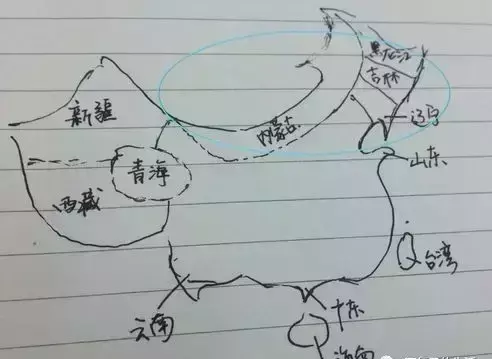 黑龙江
吉林
新疆
内蒙古
辽宁
山东
青海
西藏
台湾
云南
广东
海南